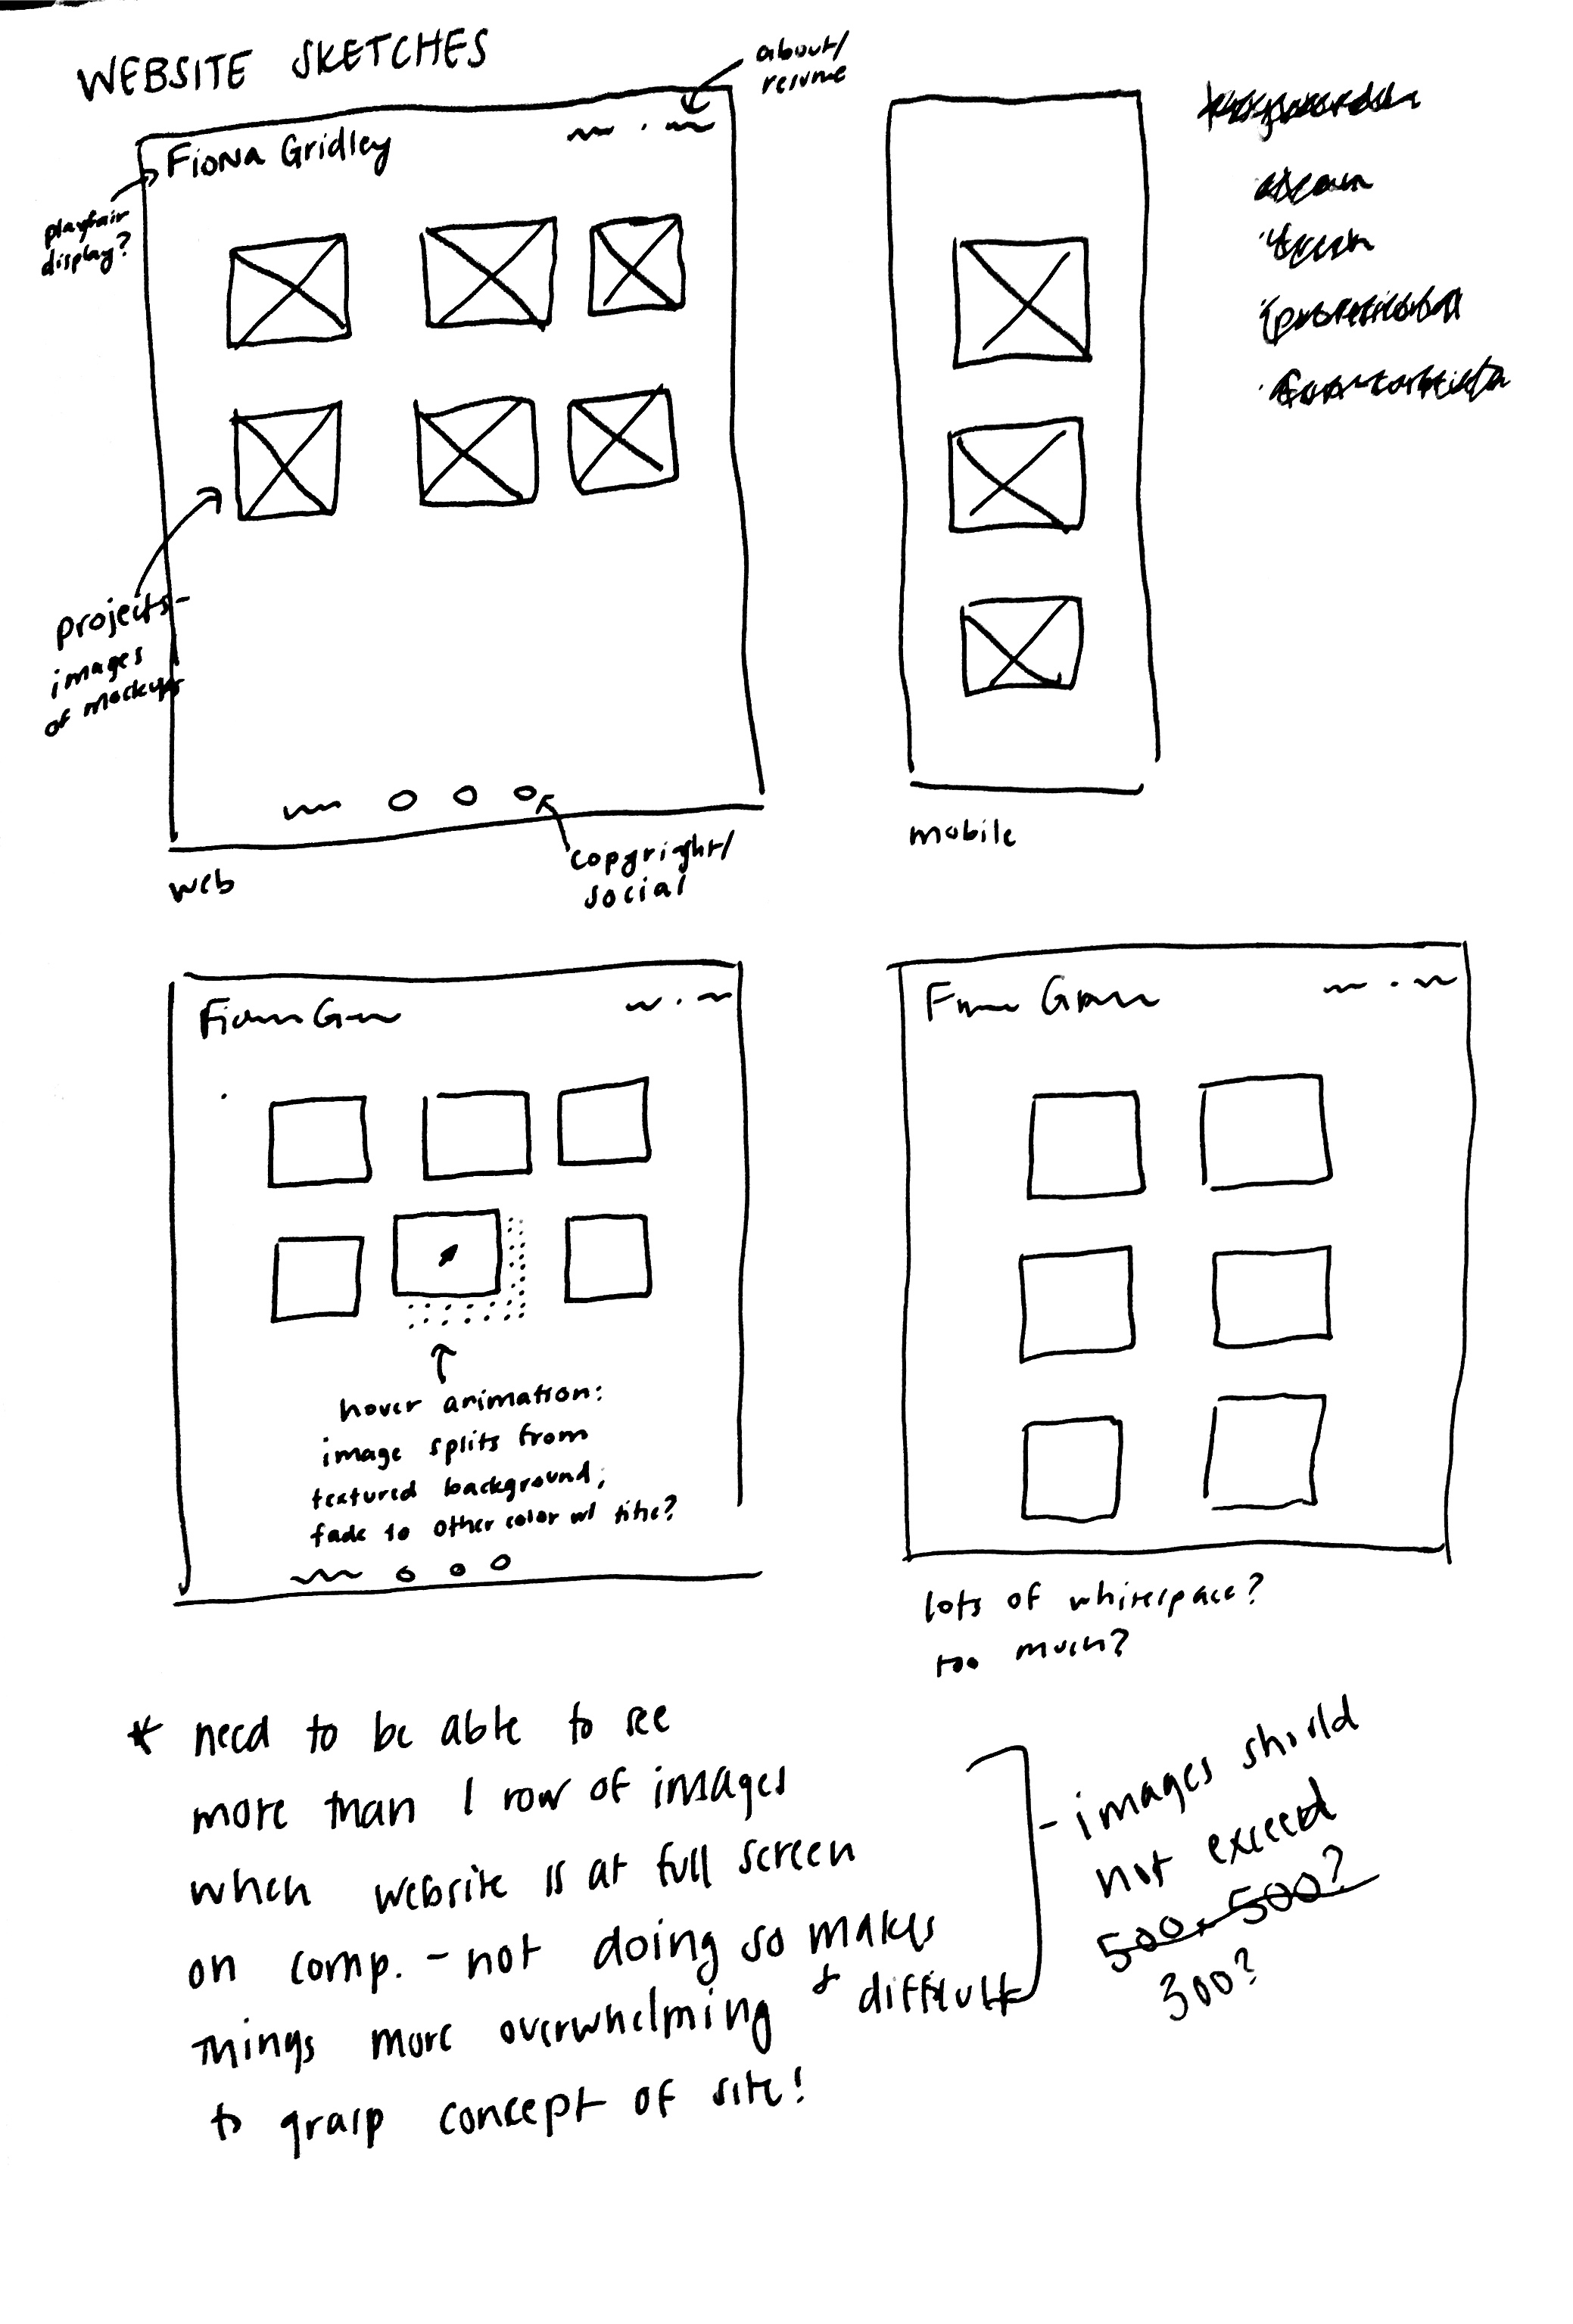 WEBSITE SKETCHES
about/
resume
Fiona Gridley
playfair
display?
projects-
images
of mockups
copyright/
social
web
mobile
hover animation:
image splits from
textured background;
fade to other color w/ title?
lots of whitespace?
too much?
* need to be able to see
more than 1 row of images
when website is at full screen
on comp. - not doing so makes
things more overwhelming & difficult
to grasp concept of site!
- images should
not exceed
500x500?
300?